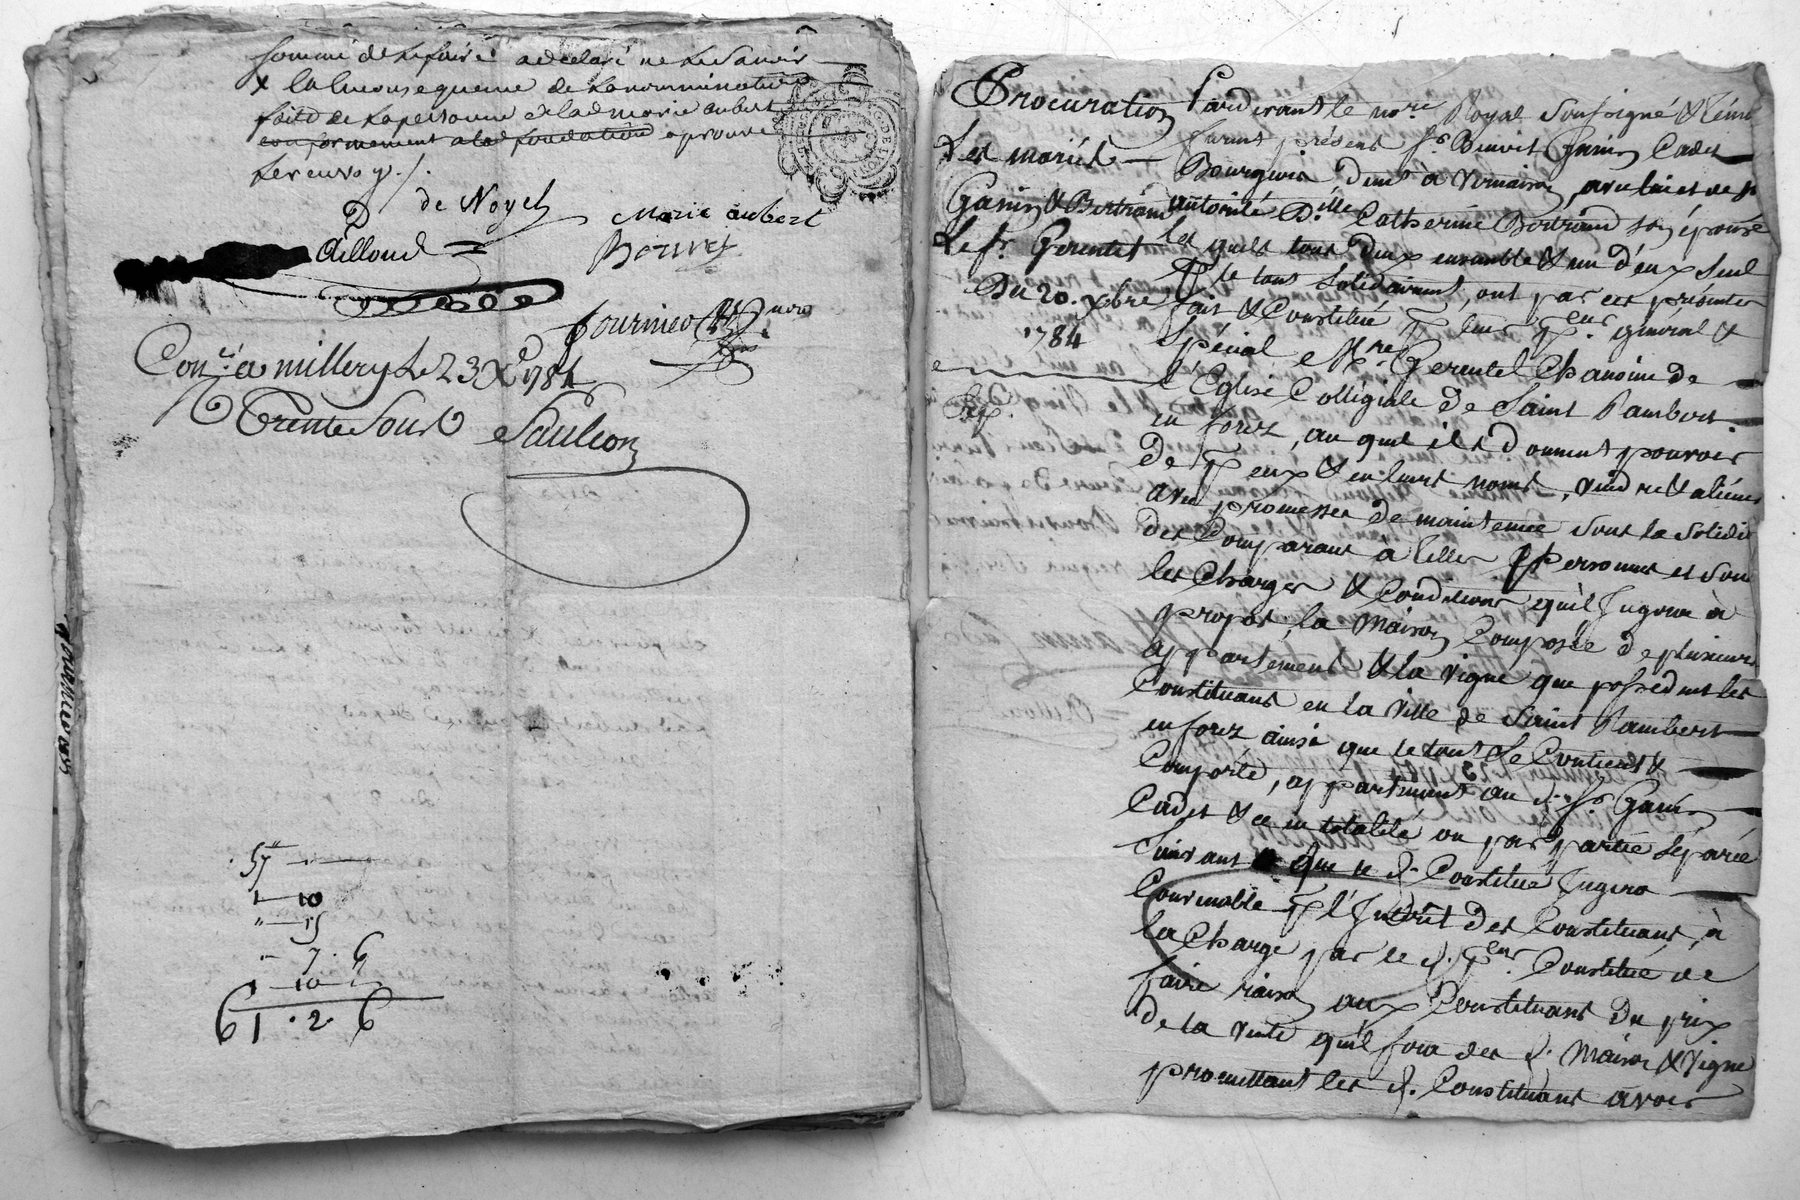 sommé de le faire a declaré ne le savoir
& la conséquence de la nommination
faite de la personne de lad marie aubert
conformement a lad fondation aprouvé
le renvoy ./.
de Noyel
Marie aubert
Ailloud
Bouvet
fournier
Con.lé a millery le 23 Xbre 1784
Trente Sous
Saulion
57
1 10
" 15
" 7 . 6
1 10
61 . 2 . 6
Procuration
des mariés
Ganin & Bertrand
Le Sr. Gerentet
Du 20. xbre
1784
Exp.
Pardevant le nore. Royal Soussigné & Témoins
furent présens Sr Benoit Ganin Cadet
Bourgeois demt a Vernaison, avec lui et de lui
autorisée Dlle Catherine Bertrand son épouse
Les quels tous deux ensemble & un d'eux seul
le tout solidairement, ont par ces présentes
fait & Constitué pr leur preur. général &
spécial Mre. Gerentet Chanoine de
l'Eglise Collégiale de Saint Rambert
en forez, au quel ils donnent pouvoir
de pr eux & en leurs noms, vendre & aliéner
avec promesses de maintenue sous la solidité
des Comparans à telles personnes et sous
les Charges & Conditions qu'il Jugera à
propos, la Maison Composée de plusieurs
appartemens & la vigne que possedent les
Constituans en la ville de Saint Rambert
en forez ainsi que le tout se Contient &
Comporte, appartenant au d. Sr Ganin
Cadet & ce en totalité ou par partie séparée
suivant que le d. Constitué Jugera
Convenable pr l'Intérêt des Constituans, à
la Charge par le d. preur. Constitué de
faire raison aux Constituans du prix
de la vente qu'il fera des d. Maison & Vigne
promettant les d. Constituans avoir